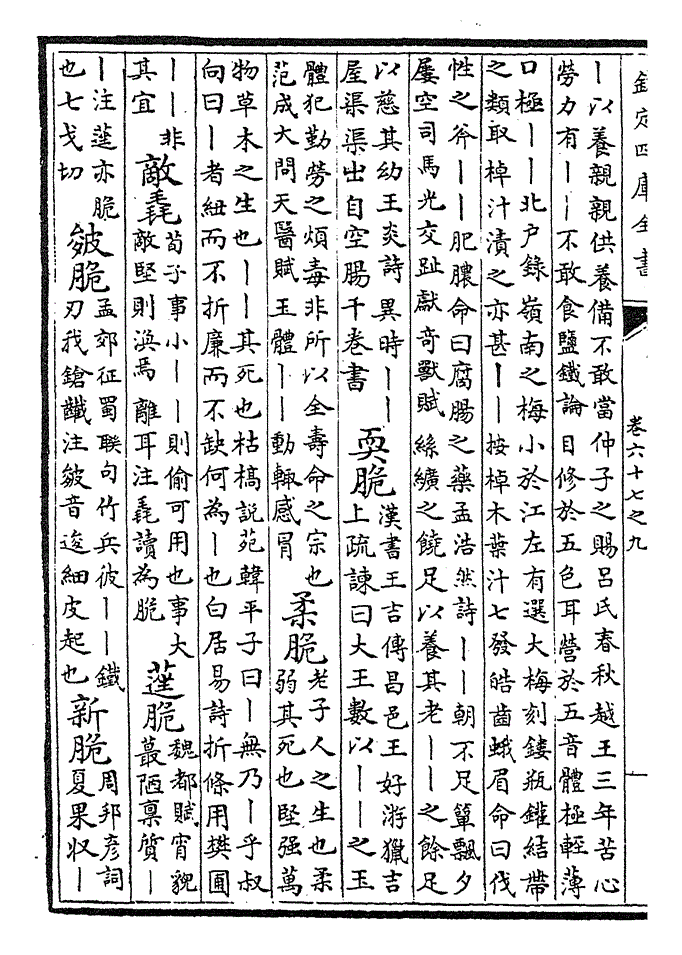 欽定四庫全書　卷六十七之九
丨以養親親供養備不敢當仲子之賜呂氏春秋越王三年苦心
勞力有丨丨不敢食鹽鐵論目修於五色耳營於五音體極輕薄
口極丨丨北户錄嶺南之梅小於江左有選大梅刻鏤瓶鑵結帶
之類取棹汁漬之亦甚丨丨按棹木葉汁七發皓齒蛾眉命曰伐
性之斧丨丨肥膿命曰腐腸之藥孟浩然詩丨丨朝不足簞瓢夕
屢空司馬光交趾獻奇獸賦絲纊之饒足以養其老丨丨之餘足
以慈其幼王炎詩異時丨丨
屋渠渠出自空腸千卷書
耎脆
漢書王吉傳昌邑王好游獵吉
上疏諫曰大王數以丨丨之玉
體犯勤勞之煩毒非所以全壽命之宗也
范成大問天醫賦玉體丨丨動輙感冒
柔脆
老子人之生也柔
弱其死也堅强萬
物草木之生也丨丨其死也枯槁説苑韓平子曰丨無乃丨乎叔
向曰丨者紐而不折廉而不缺何為丨也白居易詩折條用樊圃
丨丨非
其宜
敵毳
荀子事小丨丨則偷可用也事大
敵堅則渙焉離耳注毳讀為脆
遳脆
魏都賦宵貌
蕞陋禀質丨
丨注遳亦脆
也七戈切
皴脆
孟郊征蜀聯句竹兵彼丨丨鐵
刃我鎗䶪注皴音逡細皮起也
新脆
周邦彦詞
夏果収丨